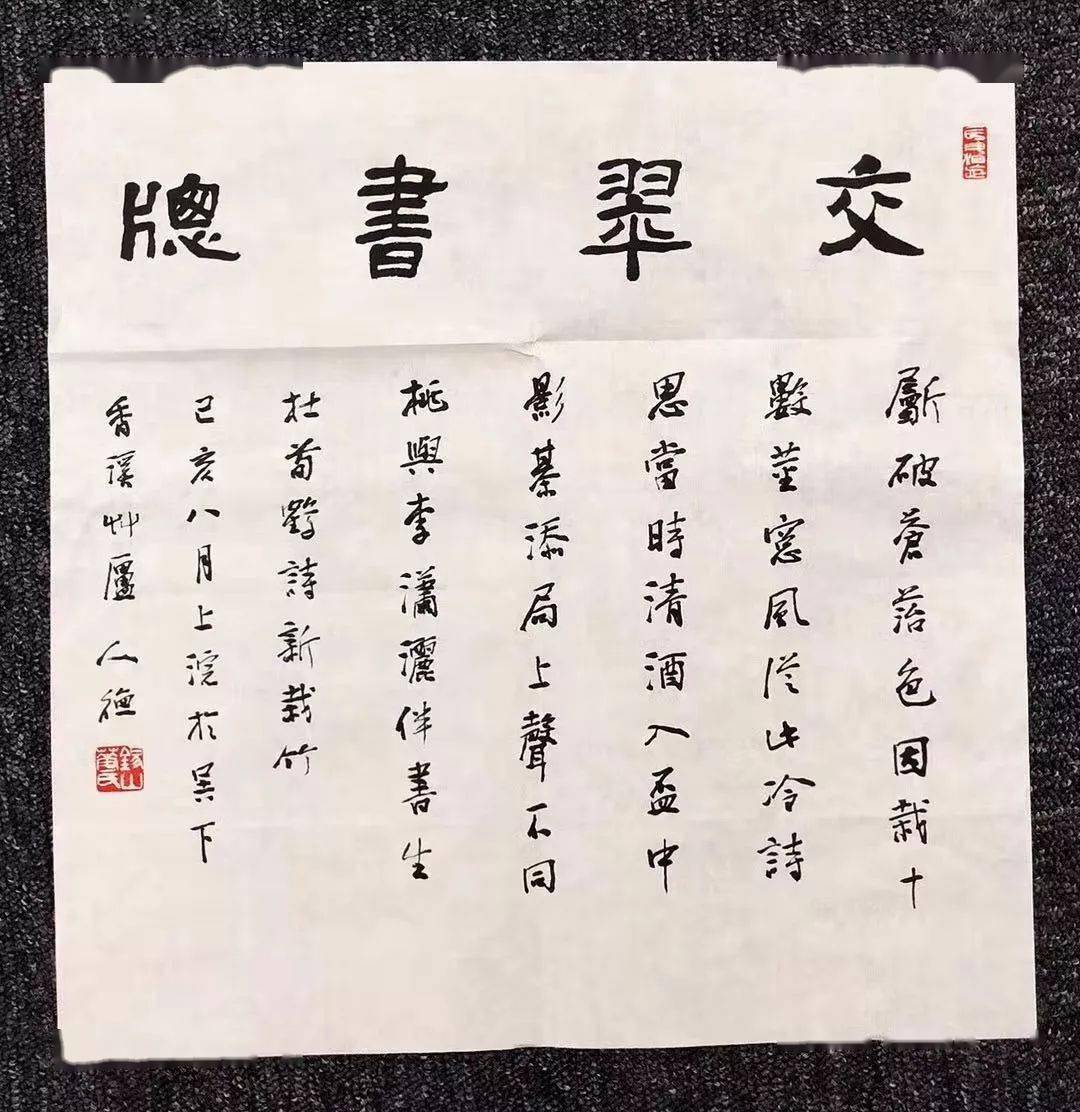 交翠書牕
斸破蒼菭色因栽十
數莖窓風從此冷詩
思當時清酒入盃中
影棊添局上聲不同
桃與李瀟灑伴書生
杜荀鶴詩新栽竹
己亥八月上浣於吳下
香溪艸廬人德
錫山華氏